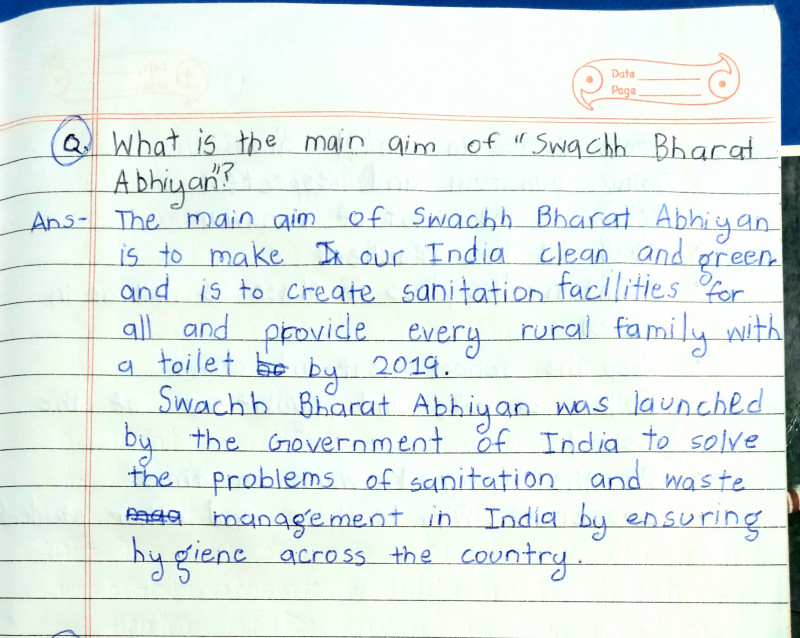 Date
Page
Q. What is the main aim of "Swachh Bharat
Abhiyan"?
Ans- The main aim of Swachh Bharat Abhiyan
is to make our India clean and green
and is to create sanitation facilities for
all and provide every rural family with
a toilet by 2019.
Swachh Bharat Abhiyan was launched
by the Government of India to solve
the problems of sanitation and waste
management in India by ensuring
hygiene across the country.